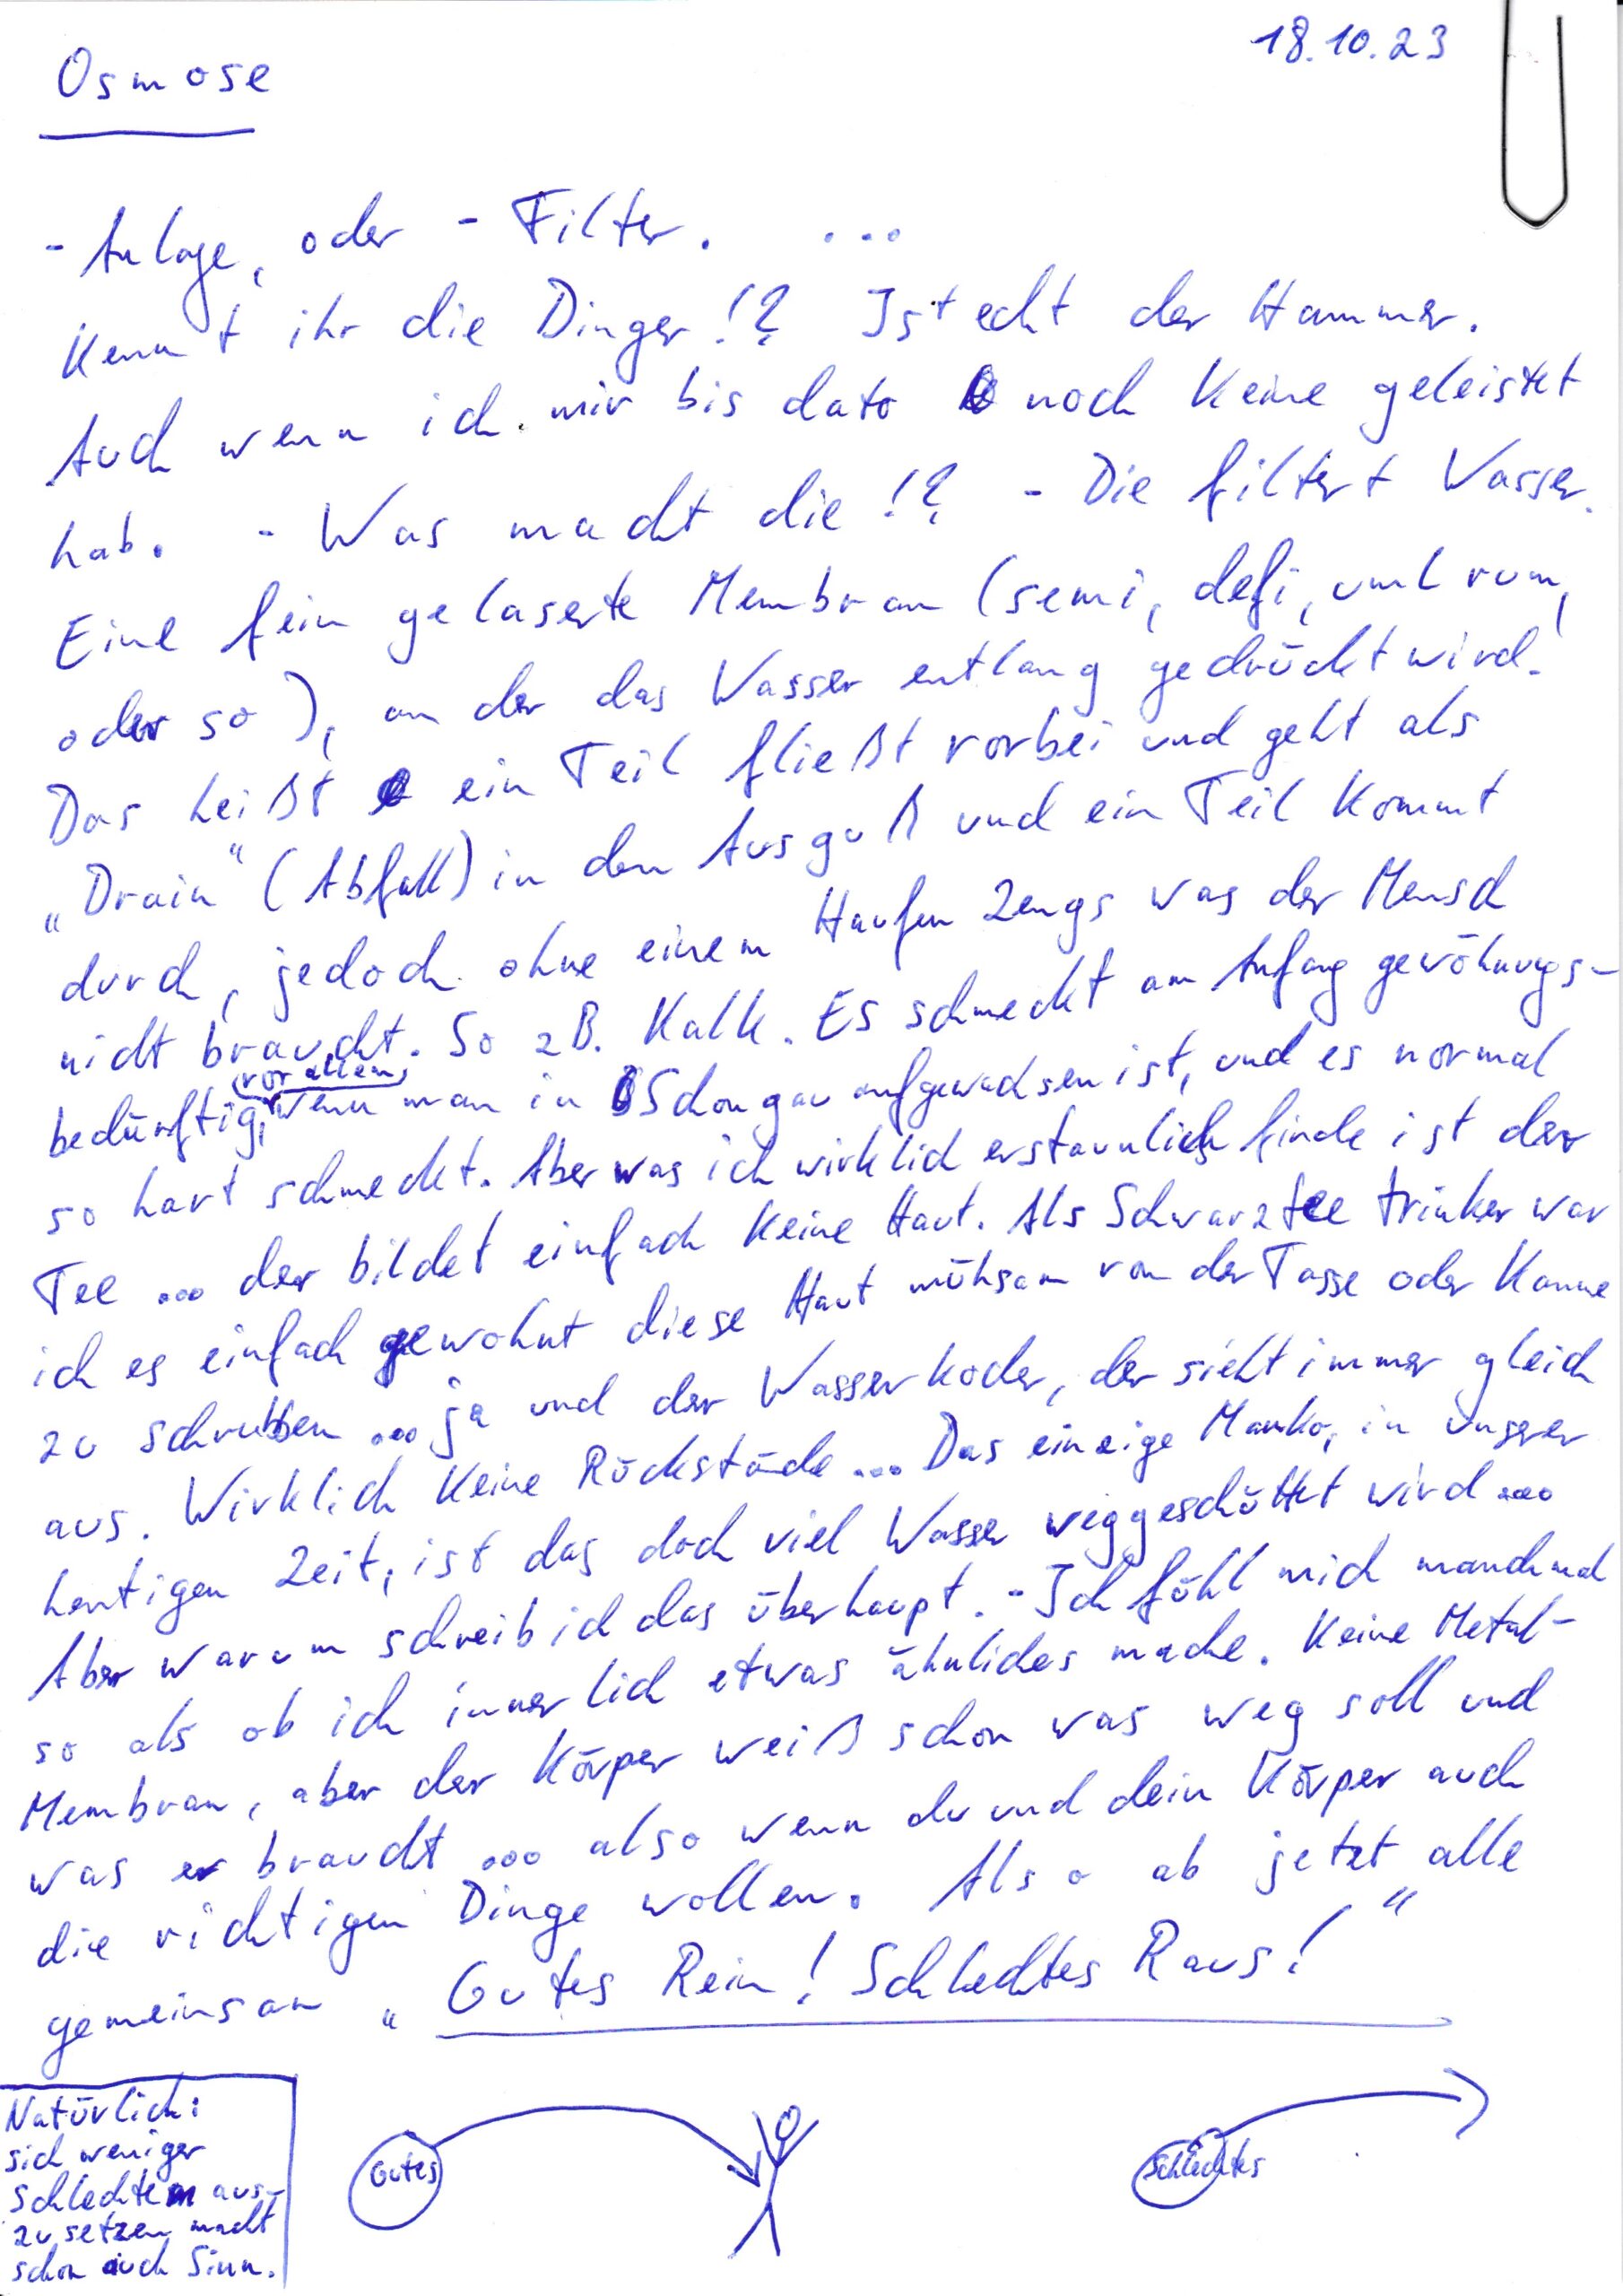 18.10.23
Osmose
- Anlage, oder - Filter. ...
Kennt ihr die Dinger!? Ist echt der Hammer.
Auch wenn ich mir bis dato noch keine geleistet
hab. - Was macht die!? - Die filtert Wasser.
Eine fein gelaserte Membran (semi, defi, uml rum,
oder so), an der das Wasser entlang gedrückt wird.
Das heißt ein Teil fließt vorbei und geht als
„Drain" (Abfall) in den Ausguß und ein Teil kommt
durch, jedoch ohne einem Haufen Zeugs was der Mensch
nicht braucht. So zB. Kalk. Es schmeckt am Anfang gewöhnungs-
bedürftig, (vor allem) wenn man in Schongau aufgewachsen ist, und es normal
so hart schmeckt. Aber was ich wirklich erstaunlich finde ist der
Tee ... der bildet einfach keine Haut. Als Schwarztee trinker war
ich es einfach gewohnt diese Haut mühsam von der Tasse oder Kanne
zu schrubben ... ja und der Wasserkocher, der sieht immer gleich
aus. Wirklich keine Rückstände ... Das einzige Manko, in unserer
heutigen Zeit, ist das doch viel Wasser weggeschüttet wird ...
Aber warum schreib ich das überhaupt. - Ich fühl mich manchmal
so als ob ich innerlich etwas ähnliches mache. Keine Metal-
Membran, aber der Körper weiß schon was weg soll und
was er braucht ... also wenn du und dein Körper auch
die richtigen Dinge wollen. Also ab jetzt alle
gemeinsam „Gutes Rein! Schlechtes Raus!"
Natürlich:
sich weniger
schlechtem aus-
zusetzen macht
schon auch Sinn.
Gutes
Schlechtes